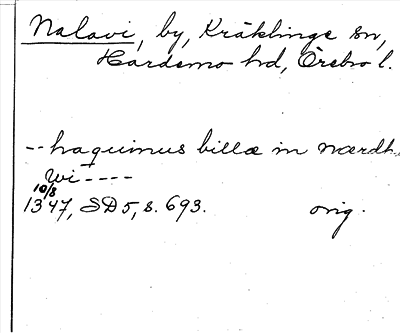 Nalavi, by, Kräklinge sn,
Hardemo hd, Örebro l.
-- haquinus billæ in nærdh
Wi ----
10/8
1347, SD 5, s. 693. orig.